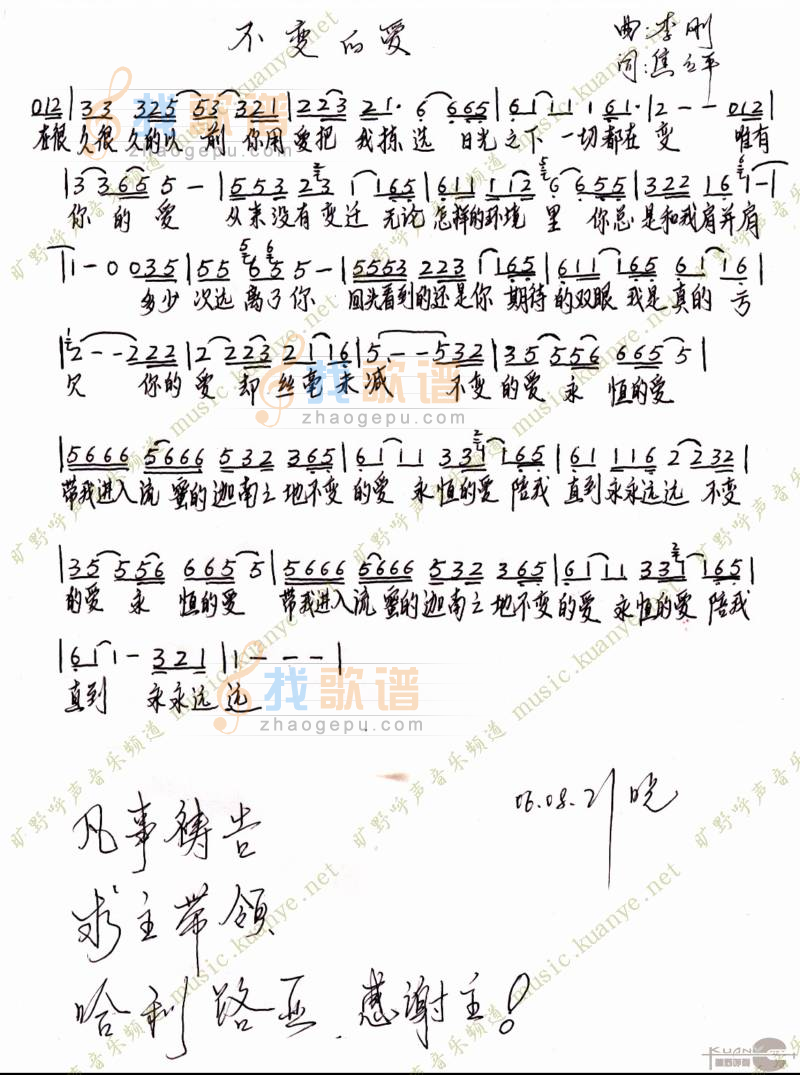 不变的爱
曲:李刚
词:焦立平
012|33 325 53 321|223 21· 6 665|6111 161·|2 - - 012|
在很久很久的以前 你用爱把我拣选 日光之下一切都在变 唯有
|33655 5 -|553 23 1 165|611 112 6 655|322 16 1-|
你的爱 从来没有变迁 无论怎样的环境里 你总是和我肩并肩
|1-0 035|55 655 5-|5553 223 1165|611165 61 16|
多少次远离了你 回头看到的还是你 期待的双眼 我是真的亏
|2--222|2 223 2116|5--532|35 556 665 5|
欠 你的爱却丝毫未减 不变的爱 永恒的爱
|5666 5666 532 365|6111 331 165|61 116 2 232|
带我进入流蜜的迦南之地不变的爱 永恒的爱陪我直到永永远远 不变
|35 556 665 5|5666 5666 532 365|6111 331 165|
的爱 永恒的爱 带我进入流蜜的迦南之地不变的爱 永恒的爱陪我
|611- 321|1---|
直到 永永远远
06.08.21
晓
凡事祷告
求主带领
哈利路亚.感谢主!
找歌谱
zhaogepu.com
旷野呼声音乐频道 music.kuanye.net